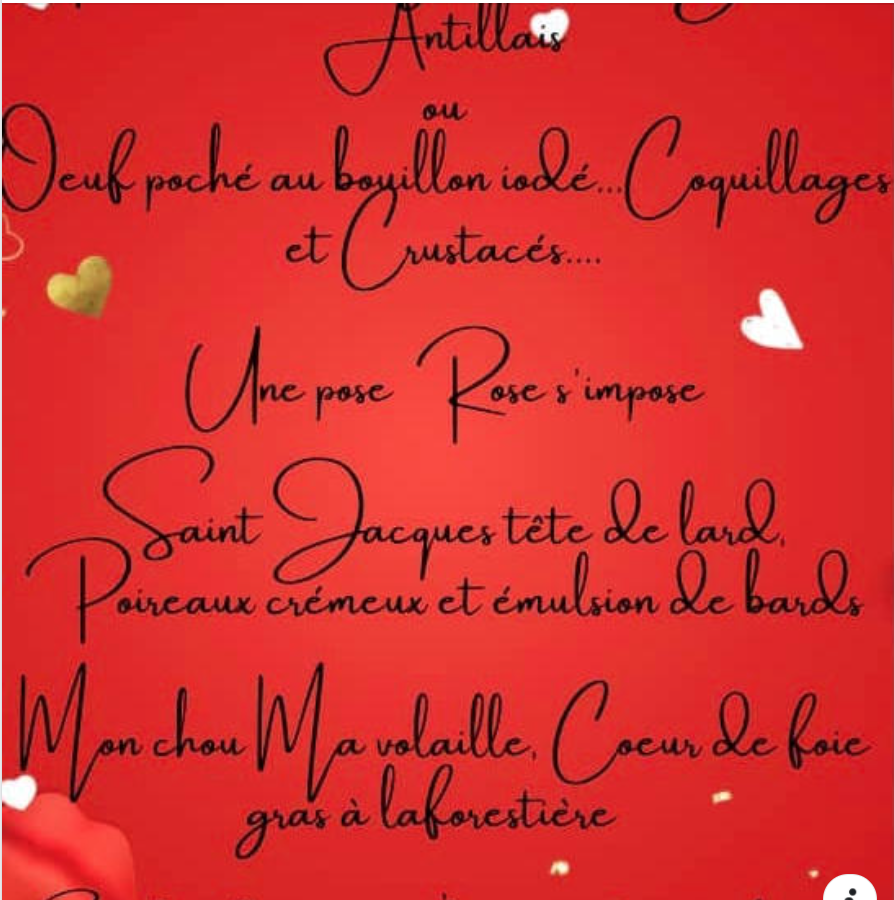 Antillais
ou
Oeuf poché au bouillon iodé...Coquillages
et Crustacés....
Une pose Rose s'impose
Saint Jacques tête de lard,
Poireaux crémeux et émulsion de bards
Mon chou Ma volaille, Coeur de foie
gras à laforestière